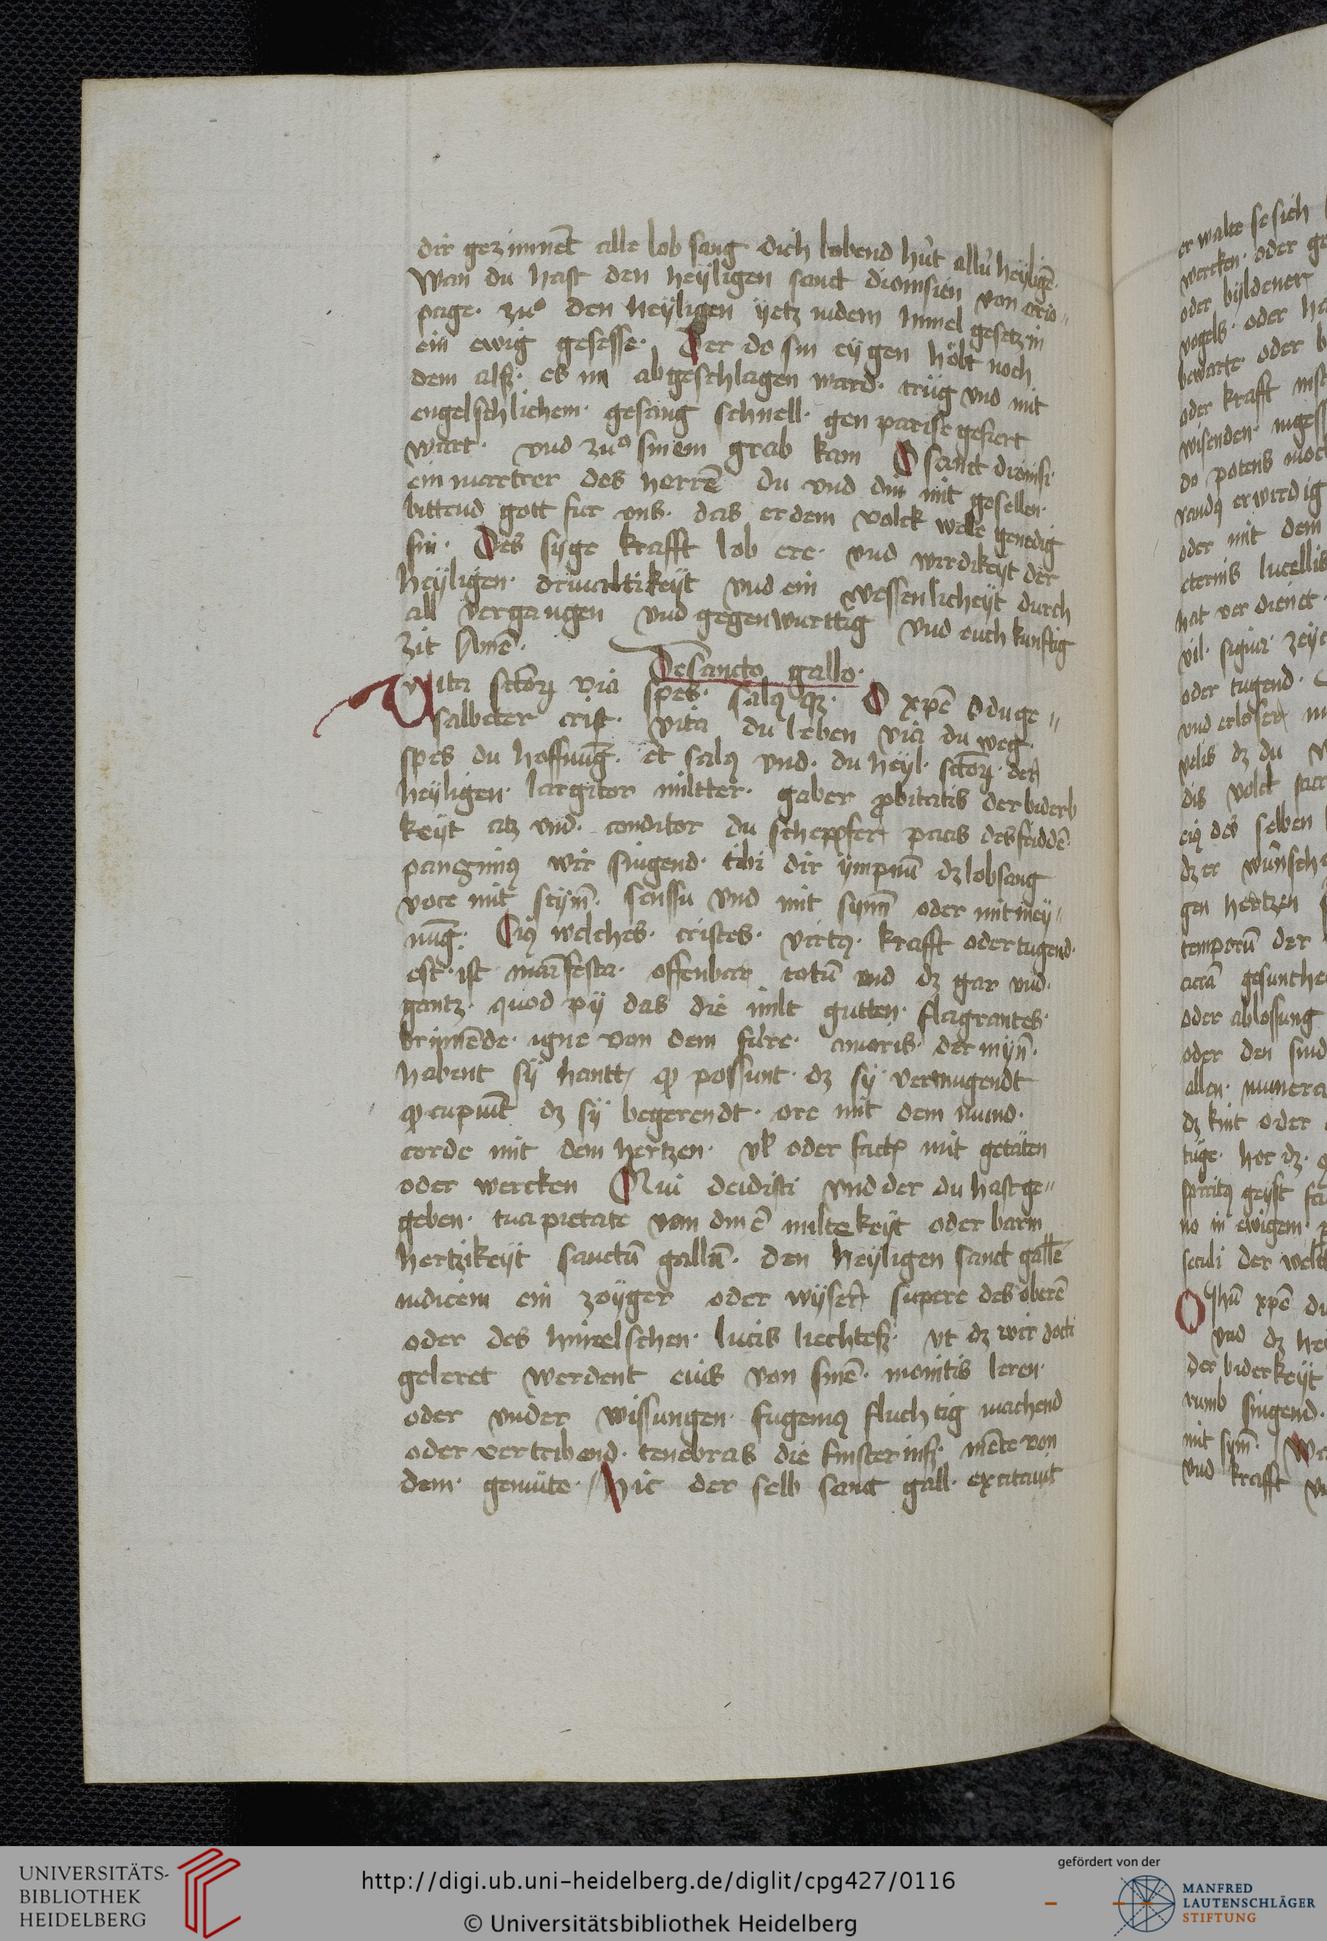 dir gezimmet alle lob sang dich lobend hüt allü heyligē
Wan du hast den heyligen sanct dionisien von ario„
page · zuͦ den heyligen yetz indem himel gesetz in
ein ewig gesesse · Der do sin eygen höbt noch
dem alß · es im abgeschlagen ward · trüg vnd mit
engelschlichem · gesang schnell · gen pariß gefiert
wart · vnd zuͦ sinem grab kam O sanct dionisi
ein martrer des herrē du vnd din mit gesellen ·
bittend gott fur vns · das er dem volck welle genedig
sin · Des syge krafft lob ere · vnd wirdikeyt der
heyligen · driualtikeyt vnd ein wessenlicheyt durch
all vergangen vnd gegenwurttig vnd ouch kunftig
zit Amē ·
De sancto gallo ·
Vita sctōꝝ via spes · salꝰ qꝫ · O xp̄e O du ge„
salbeter crist · vita du leben via du weg ·
spes du hoffnūg · et salꝰ vnd · du heyl · sctōꝝ · der
heyligen · largitor miltter · gaber ꝓbitatis der biderb
keyt atz vnd · conditor du schepffer pacis des friddē ·
pangimꝰ wir singend · tibi dir ympnū dz lobsang
voce mit stym̄ · senssu vnd mit synn̄ oder mit mey„
nūg · Cuiꝰ welches · cristes · virtꝰ · krafft oder tugend ·
est · ist mānifesta · offenbar totū vnd dz gar vnd ·
gantz · quod pij das die milt gutten · flagrantes ·
brinnēde · igne von dem fúre · amoris · der myn̄ ·
habent sy hantt ꝙ possunt · dz sy vermugendt
ꝙ cupiūt dz sy begerendt · ore mit dem mund ·
corde mit dem hertzen · vl̄ oder factꝭ mit getäten
oder wercken Qui dedisti vnd der du hast ge„
geben · tua pietate von dinē miltekeyt oder barm
hertzikeyt sanctū gallū · den heyligen sanct gallē
iudicem ein zöyger oder wyser supere des oberē
oder des himelschen · lucis liechteß · vt dz wir docti
geleret werdent eius von sinē · monitis leren ·
oder vnder wissungen · fugemꝰ fluchtig machend
oder vertribend · tenebras die finsterniß · mēte von
dem · gemüte · Hic der selb sanct gall · excitauit
er walte se sich
wercken · oder ge
oder byldener
vogels · oder ha
bewarte · oder b
oder krafft
wisenden ·
do potens moch
randꝰ erwirdig
oder mit dem
eternis lucellis
hat ver dienet ·
vil · signa · zeyc
oder tugend ·
vnd erloser
velis dz du
dis volck
eiꝰ des selben
dz er wunsch
gen hertzen
temporū der
oder ablossung
oder den sund
allen · numera
dz kint oder
tüge · hoc dz ·
spiritꝰ geyst
no in ewigem ·
seculi der welt
O Jhū xp̄e du
vnd dz
der biderkeyt
rumb singend ·
mit sym̄ ·
vnd krafft
UNIVERSITÄTS-
BIBLIOTHEK
HEIDELBERG
http://digi.ub.uni-heidelberg.de/diglit/cpg427/0116
© Universitätsbibliothek Heidelberg
gefördert von der
MANFRED
LAUTENSCHLÄGER
STIFTUNG